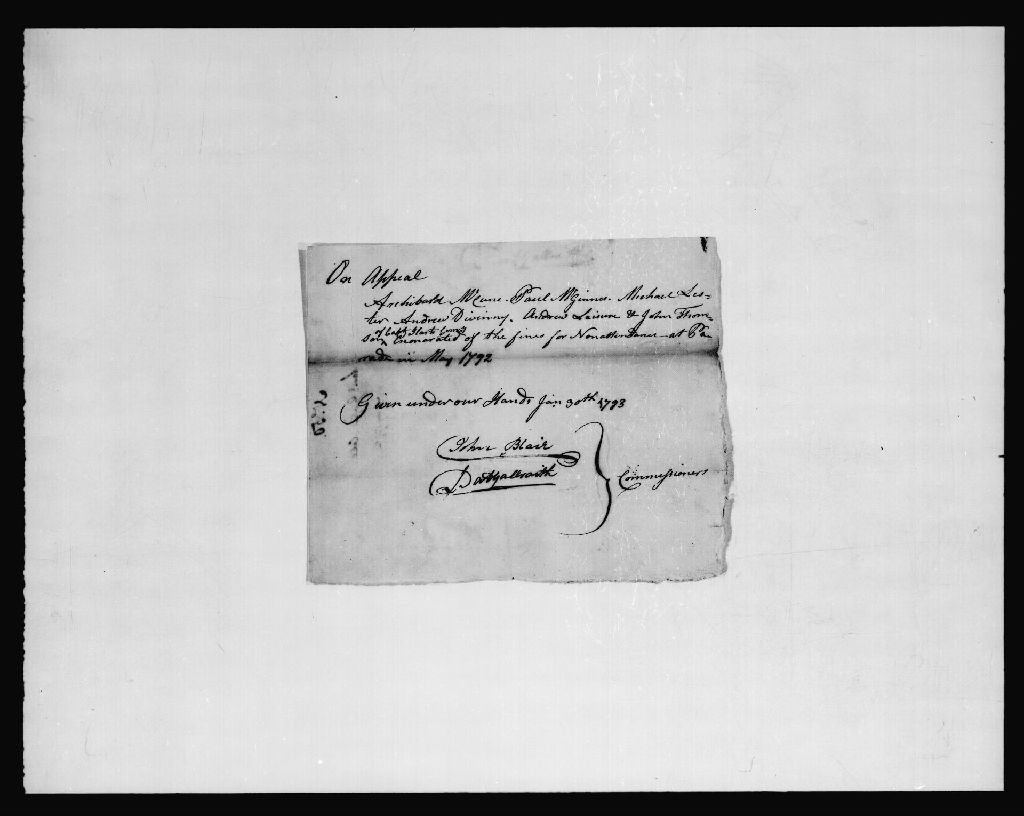 On Appeal
Archibald McCune. Paul McGinnes. Michael Les=
ter Andrew Divinny. Andrew & John Thom=
of Capt. Harts Compy
son Exonorated of the fines for Nonattendance at Pa
rade in May 1792
Given under our Hands Jan 30th 1793
John Blair
Galbraith
Commissioners